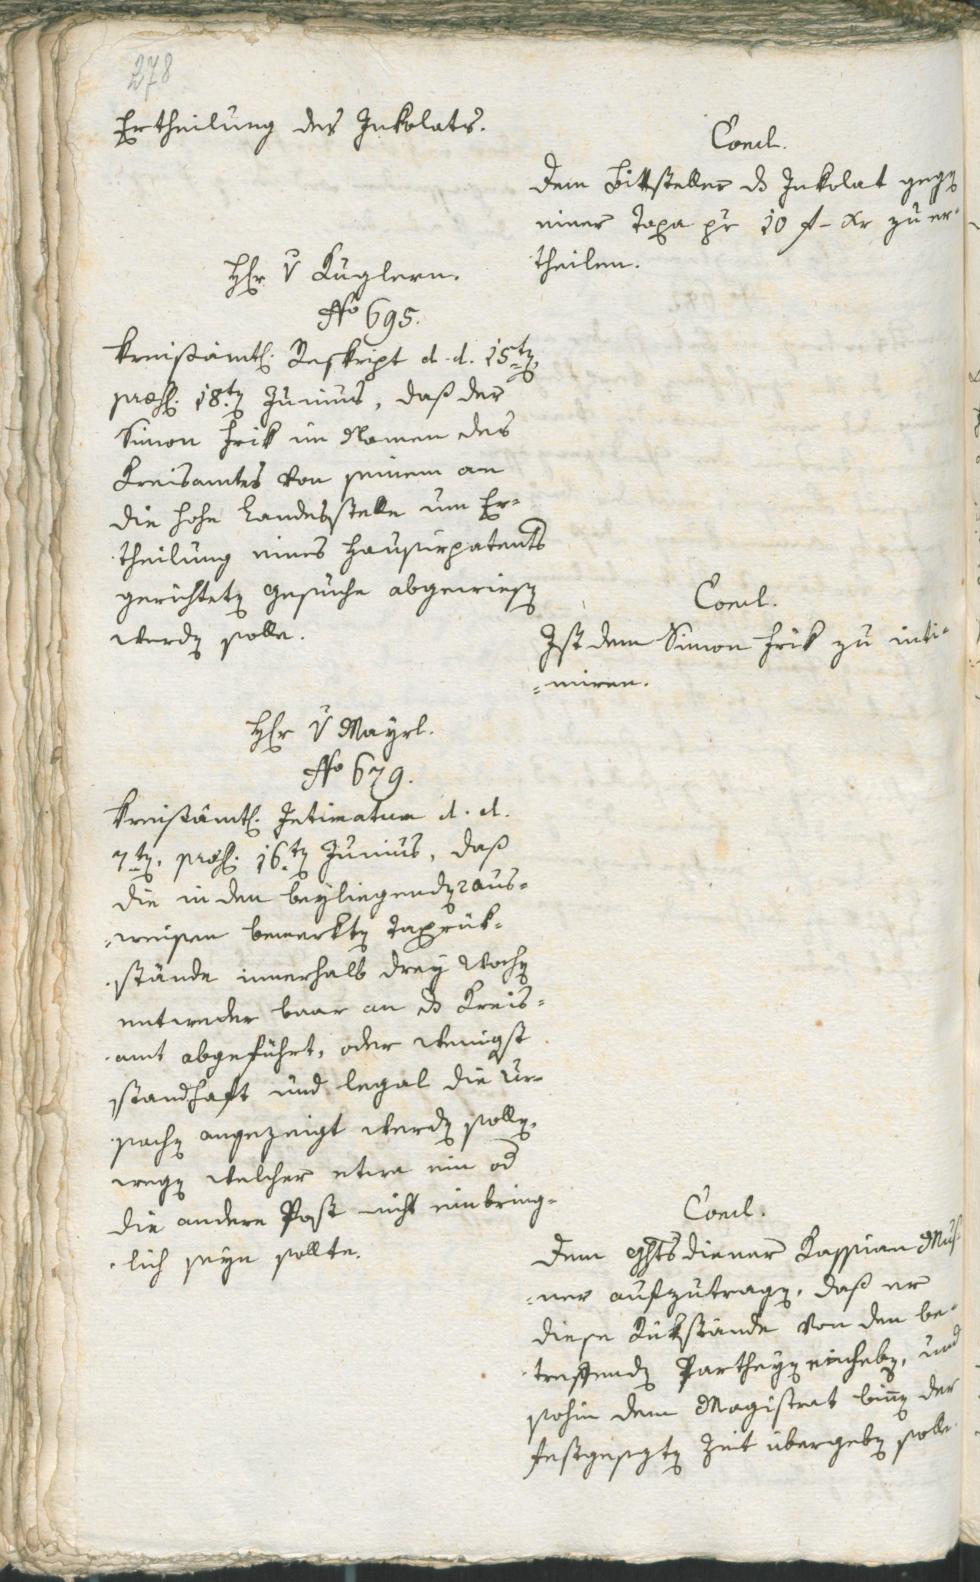 278
Ertheilung des Inkolats.
Concl.
Dem Bittsteller ds Inkolat gegen
einer Taxa pr 10 f – xr zu er-
theilen.
Hr v Kuglern.
No 695.
Kreisämtl. Reskript d. d. 15ten,
præs. 18ten Junius, daß der
Simon Frik im Namen des
Kreisamtes von seinem an
die hohe Landesstelle um Er-
theilung eines Hausirpatents
gerichteten Gesuche abgewiesen
werden solle.
Concl.
Ist dem Simon Frik zu inti-
=miren.
Hr v Mayrl.
No 679.
Kreisämtl. Intimatum d. d.
7ten, præs. 16ten Junius, daß
die in den beyliegenden Aus-
=weisen bemerkten Taxrük-
stände innerhalb drey Wochen
entweder baar an ds Kreis-
amt abgeführt, oder wenigst
standhaft und legal die Ur-
sachen angezeigt werden sollen,
wegen welcher etwa ein od
die andere Post nicht einbring-
lich seyn sollte.
Concl.
Dem Ghtsdiener Kassian
=ner aufzutragen, daß er
diese Rükstände von den be-
treffenden Partheyen einheben, und
sohin dem Magistrat binnen der
festgesezten Zeit übergeben solle